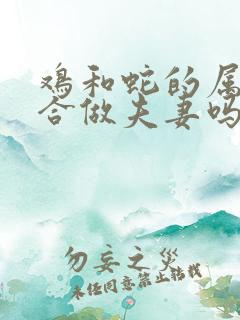 鸡和蛇的属
合做夫妻吗
勿妄之災
未经同意禁止转载